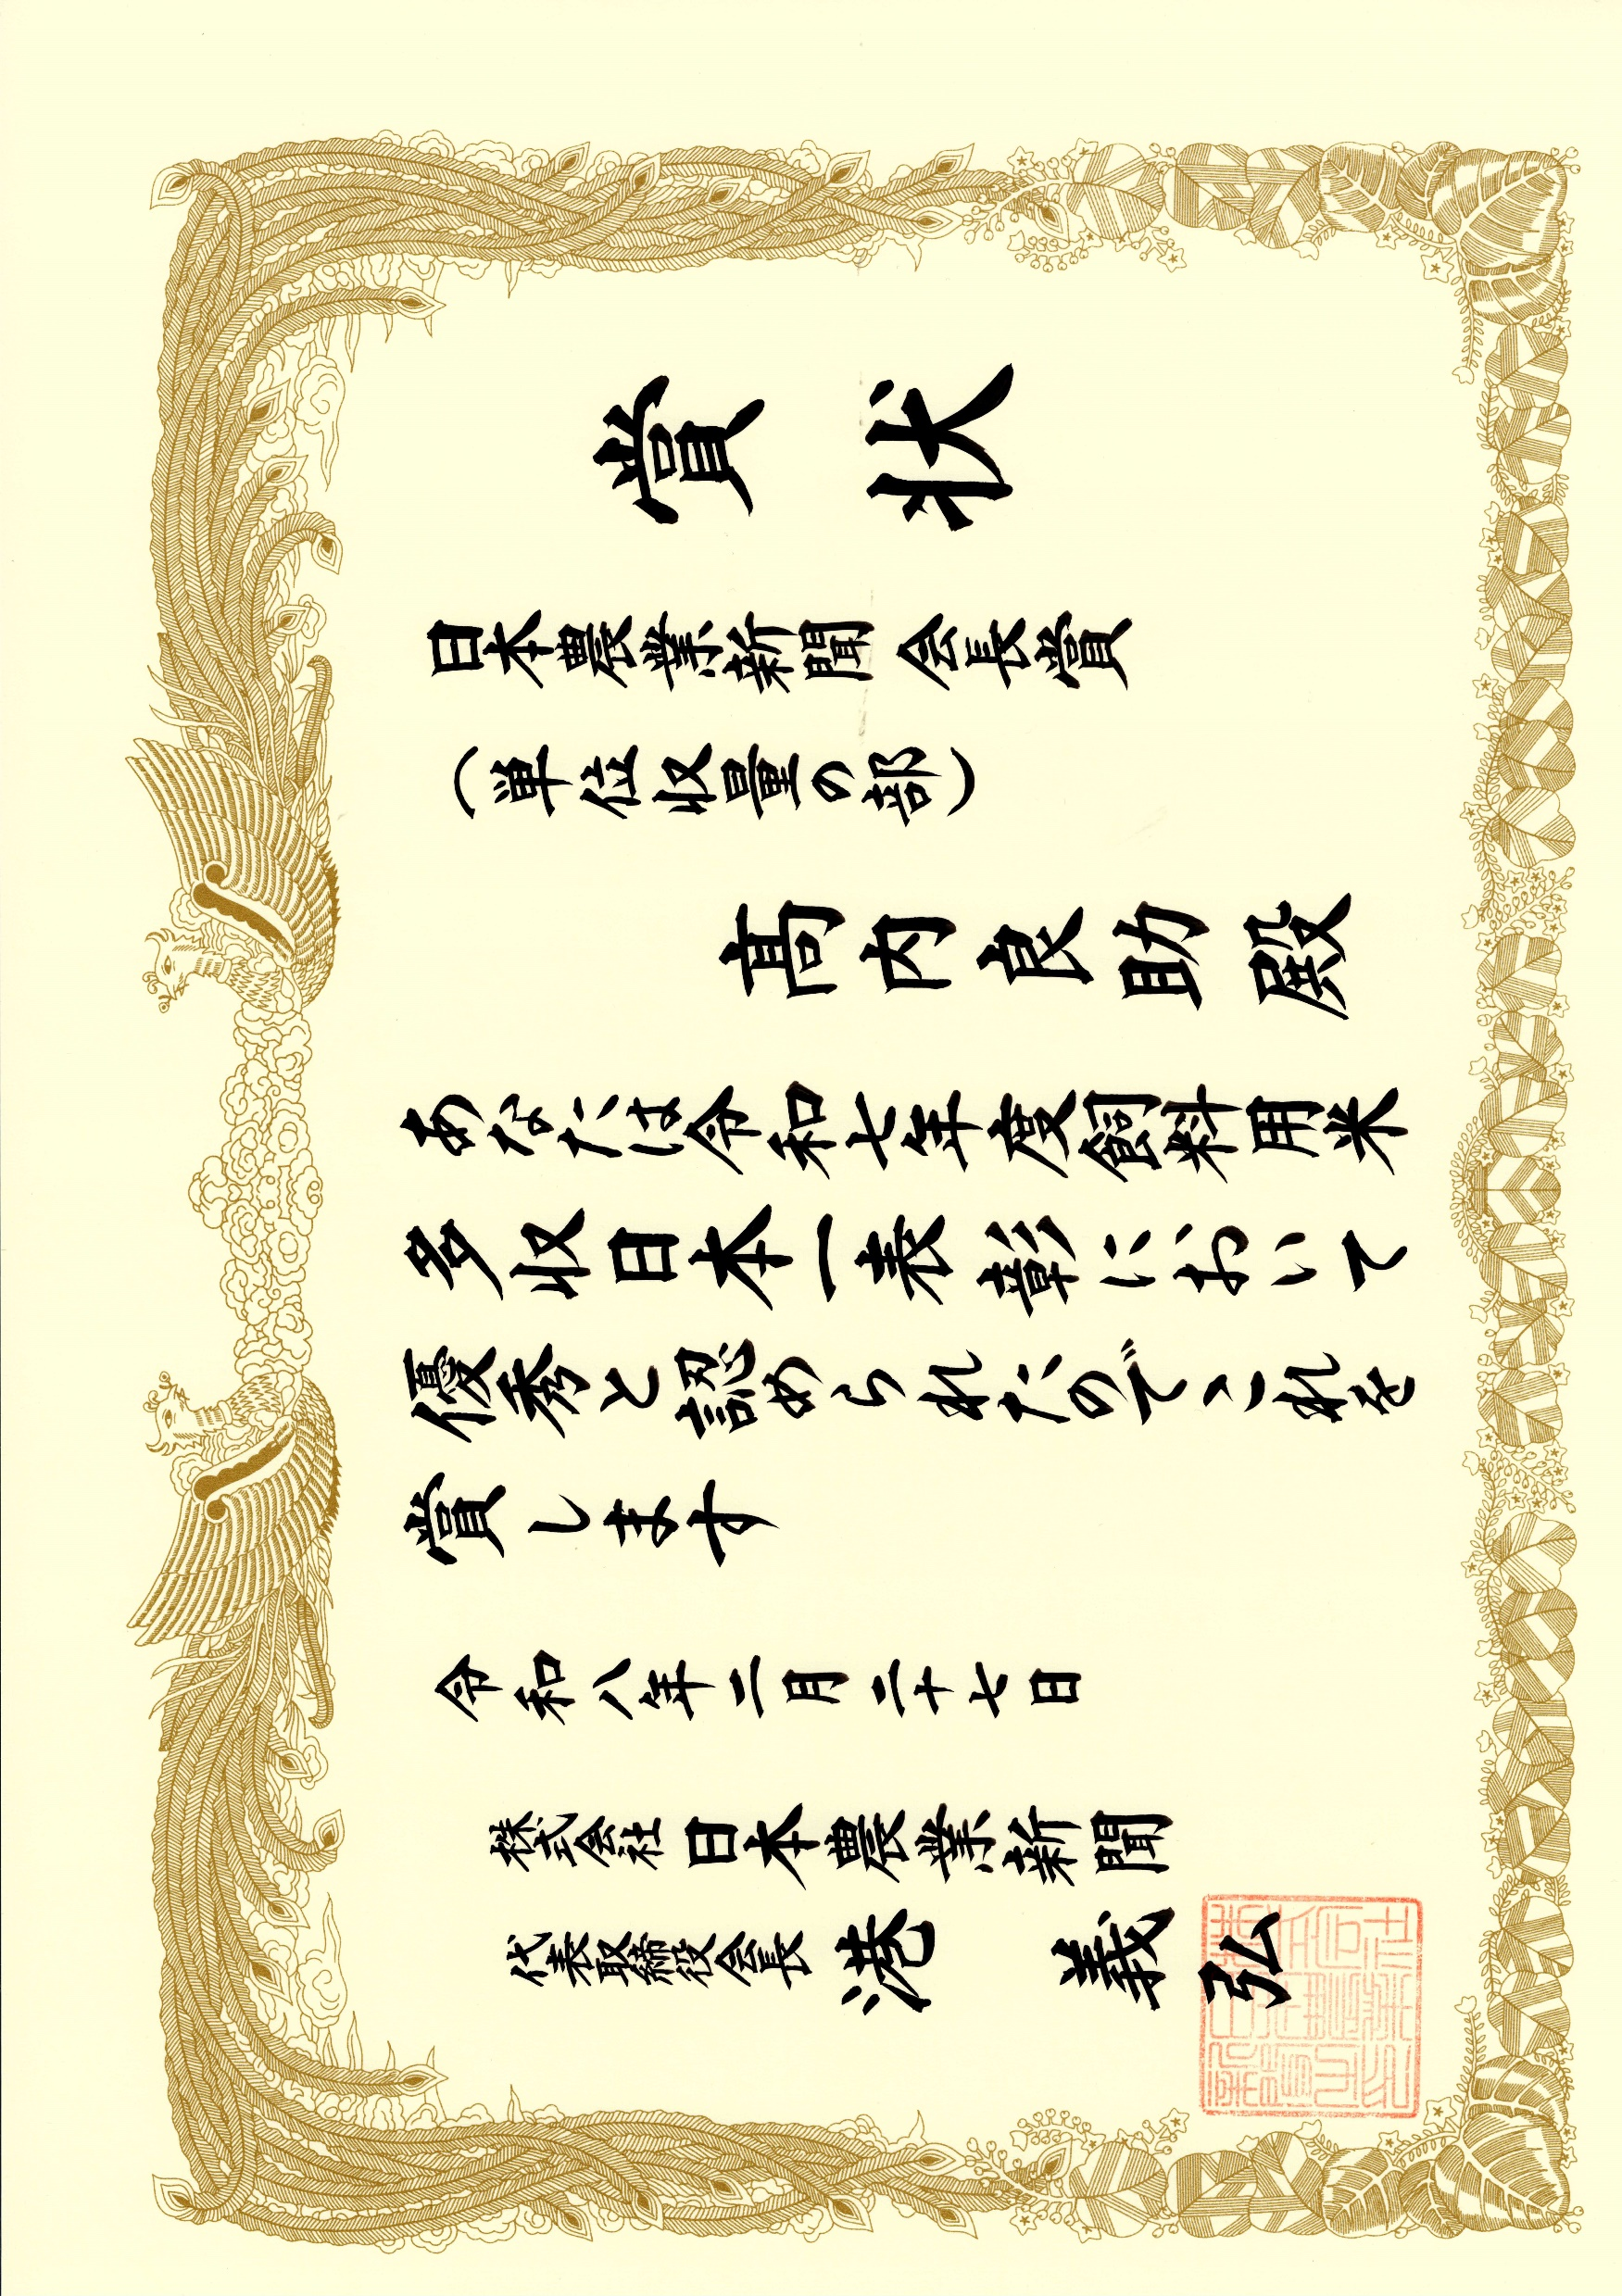 賞状
日本農業新聞会長賞
（単位収量の部）
髙内良助殿
あなたは令和七年度飼料用米
多収日本一表彰において
優秀と認められたのでこれを
賞します
令和八年二月二十七日
株式会社日本農業新聞
代表取締役会長 港 義弘